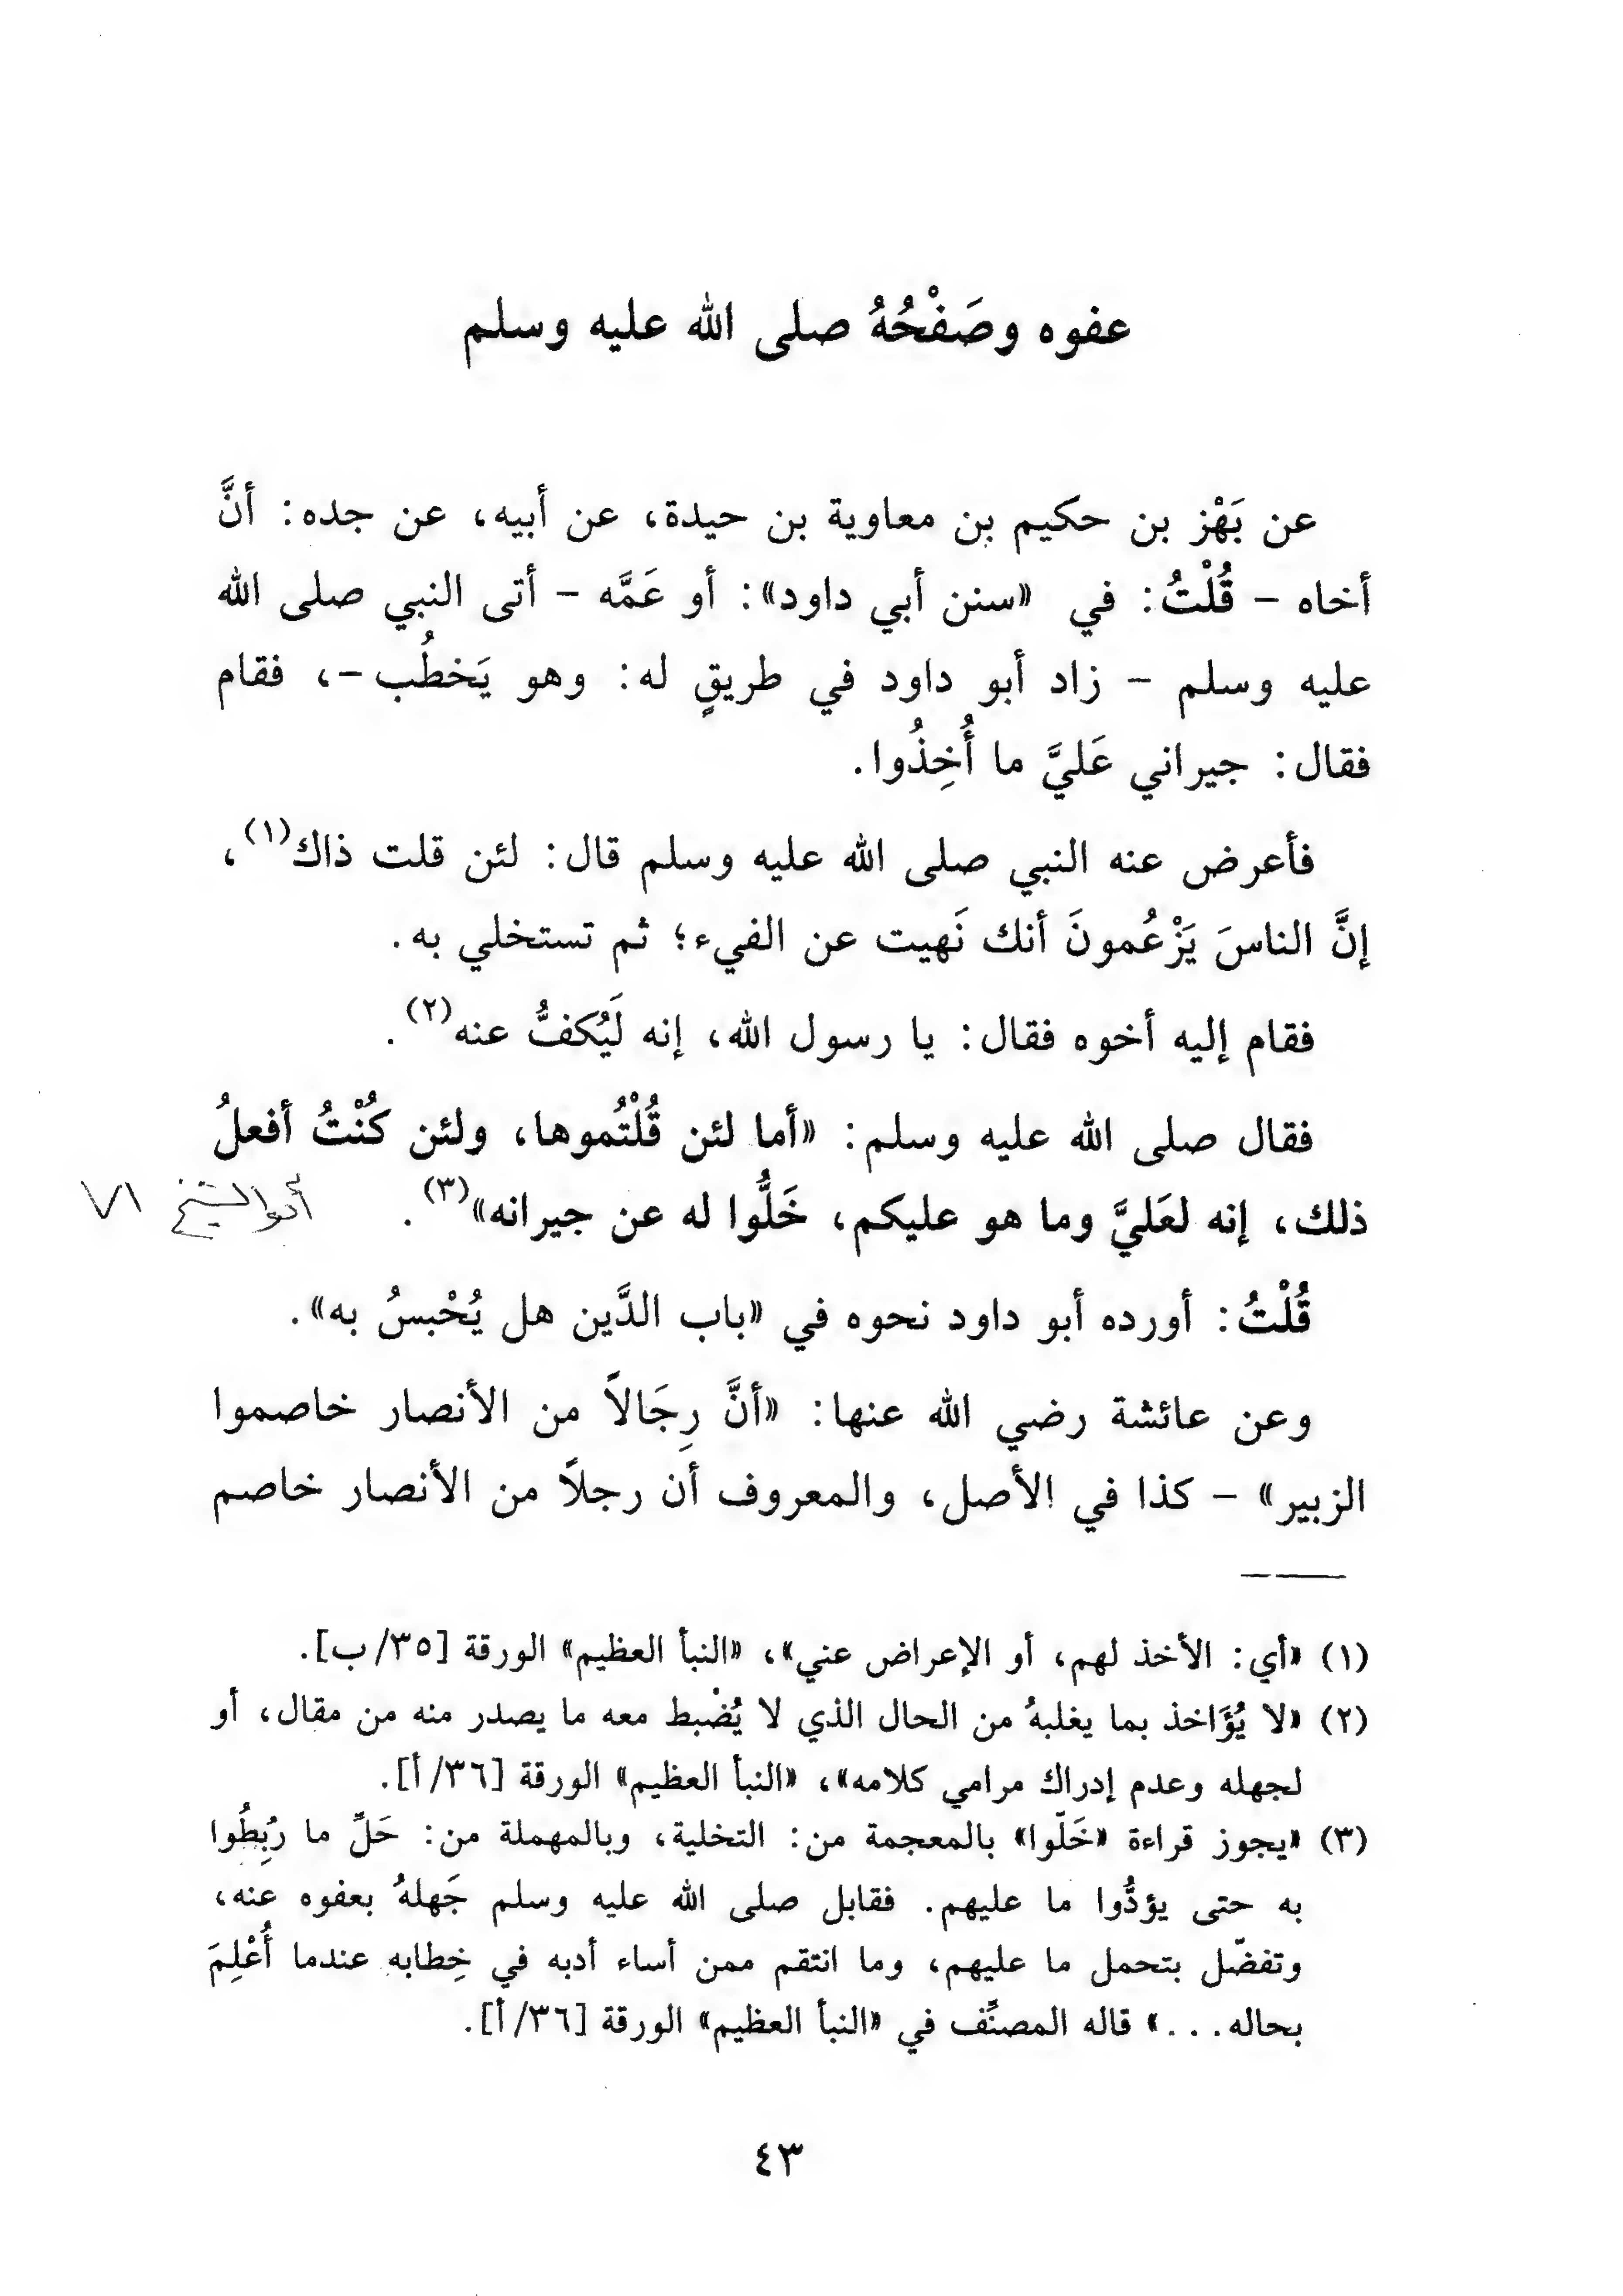 عفوه وصَفْحُهُ صلى الله عليه وسلم
عن بَهْز بن حكيم بن معاوية بن حيدة، عن أبيه، عن جده: أنَّ
أخاه - قُلْتُ: في «سنن أبي داود»: أو عَمَّه - أتى النبي صلى الله
عليه وسلم - زاد أبو داود في طريقٍ له: وهو يَخطُب -، فقام
فقال: جيراني عَليَّ ما أُخِذُوا.
فأعرض عنه النبي صلى الله عليه وسلم قال: لئن قلت ذاك(١)،
إنَّ الناسَ يَزْعُمونَ أنك نَهيت عن الفيء؛ ثم تستخلي به.
فقام إليه أخوه فقال: يا رسول الله، إنه لَيُكفُّ عنه(٢).
فقال صلى الله عليه وسلم: «أما لئن قُلْتُموها، ولئن كُنْتُ أفعلُ
ذلك، إنه لعَليَّ وما هو عليكم، خَلُّوا له عن جيرانه»(٣). أبو الشيخ ٧١
قُلْتُ: أورده أبو داود نحوه في «باب الدَّين هل يُحْبسُ به».
وعن عائشة رضي الله عنها: «أنَّ رِجَالاً من الأنصار خاصموا
الزبير» - كذا في الأصل، والمعروف أن رجلاً من الأنصار خاصم
(١) «أي: الأخذ لهم، أو الإعراض عني»، «النبأ العظيم» الورقة [٣٥/ب].
(٢) «لا يُؤَاخذ بما يغلبهُ من الحال الذي لا يُضْبط معه ما يصدر منه من مقال، أو
لجهله وعدم إدراك مرامي كلامه»، «النبأ العظيم» الورقة [٣٦/أ].
(٣) «يجوز قراءة «خَلّوا» بالمعجمة من: التخلية، وبالمهملة من: حَلِّ ما رُبِطُوا
به حتى يؤدُّوا ما عليهم. فقابل صلى الله عليه وسلم جَهلهُ بعفوه عنه،
وتفضّل بتحمل ما عليهم، وما انتقم ممن أساء أدبه في خِطابه عندما أُعْلِمَ
بحاله...» قاله المصنِّف في «النبأ العظيم» الورقة [٣٦/أ].
٤٣